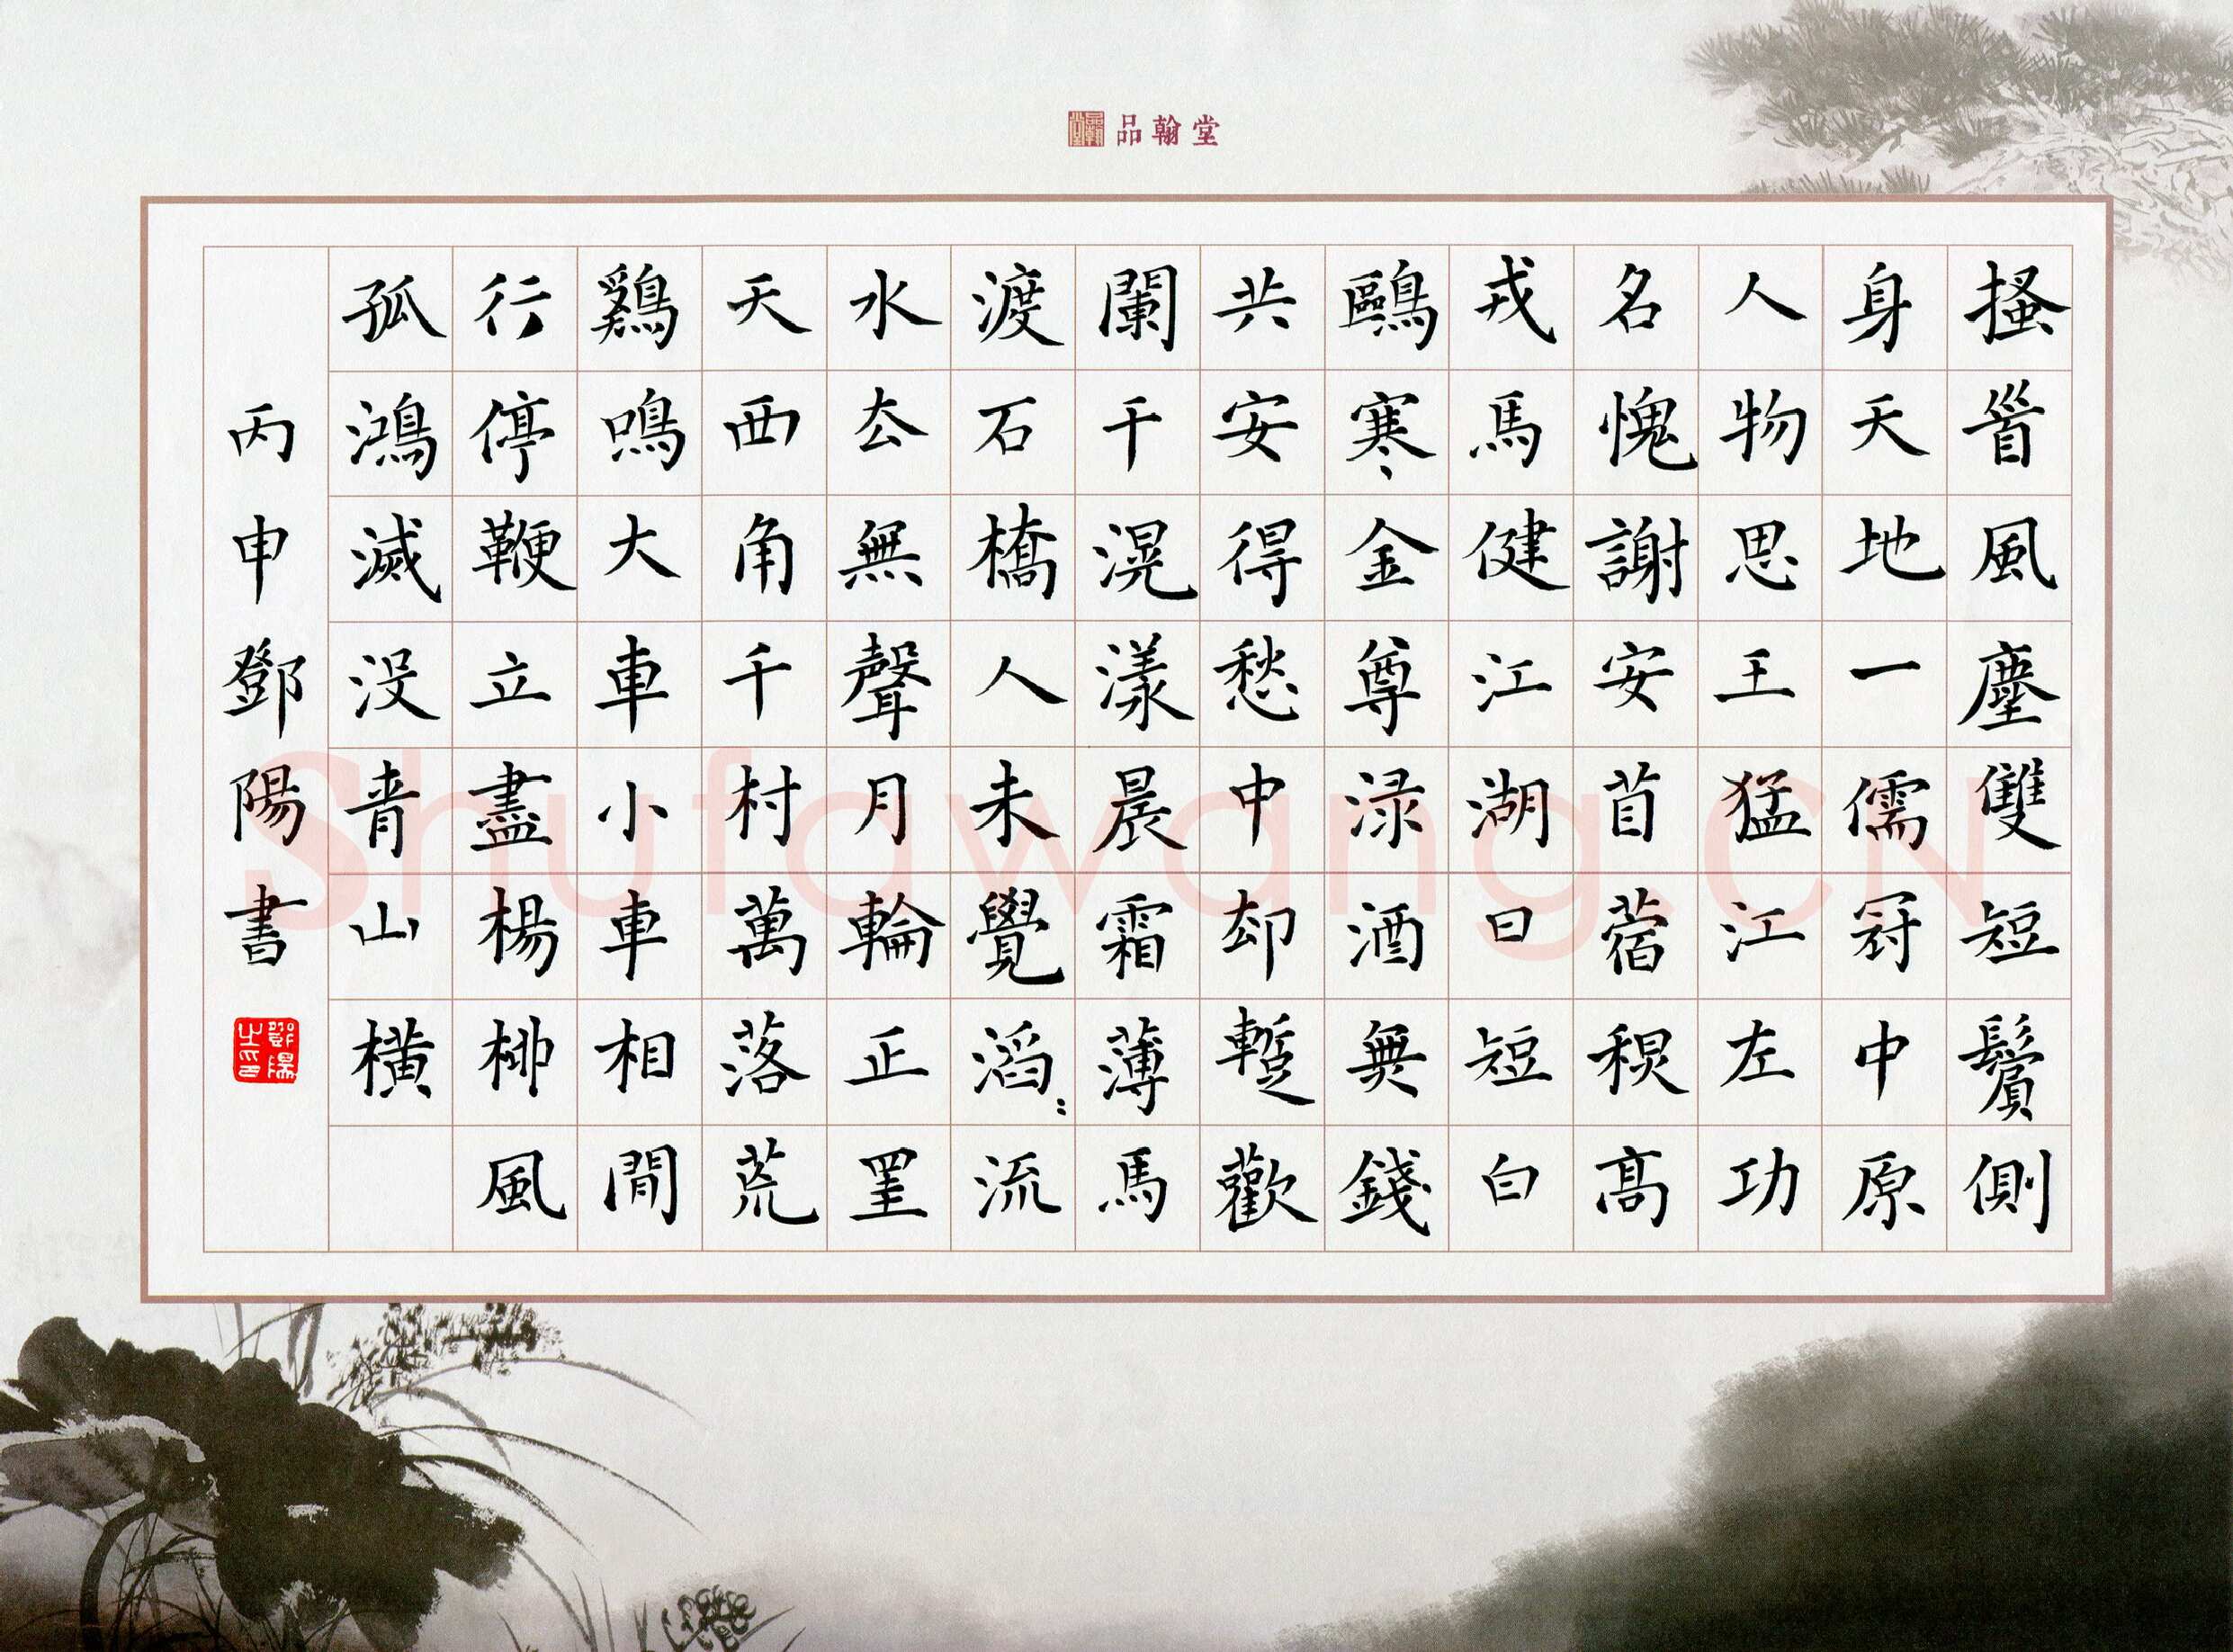 品翰堂
搔首風塵雙短鬢側
身天地一儒冠中原
人物思王猛江左功
名愧謝安苜蓿高
戎馬健江湖日短白
鷗寒金尊淥酒無錢
共安得愁中却蹔歡
闌干滉漾晨霜薄馬
渡石橋人未覺滔〻流
水去無聲月輪正罣
天西角千村萬落荒
鷄鳴大車小車相間
行停鞭立盡楊柳風
孤鴻滅没青山橫
丙申鄧陽書
鄧陽之印
Shufawang.CN